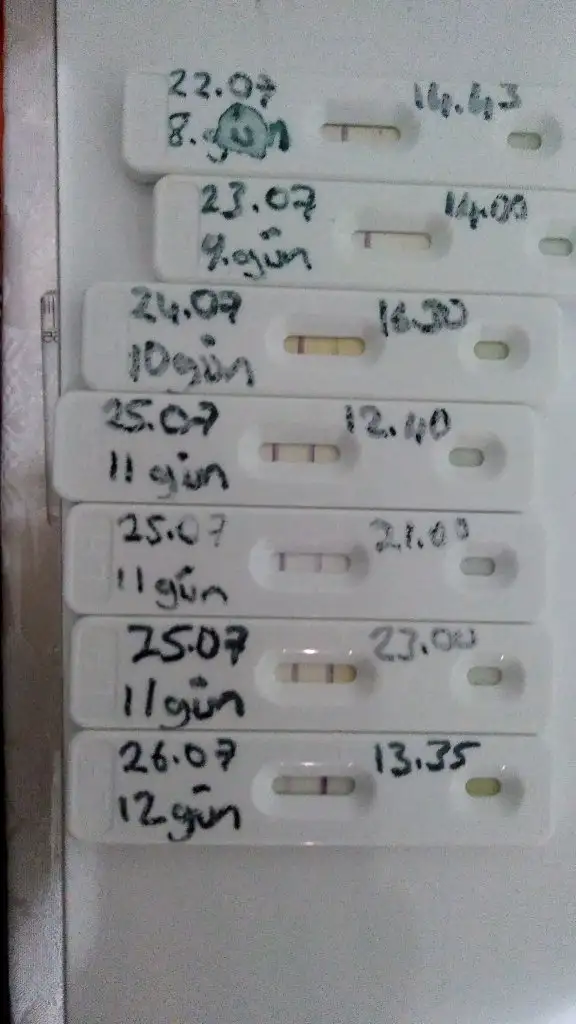 22.07 14.43
8.gün
23.07 14.00
9.gün
24.07 16.30
10 gün
25.07 12.40
11 gün
25.07 21.00
11 gün
25.07 23.00
11 gün
26.07 13.35
12 gün